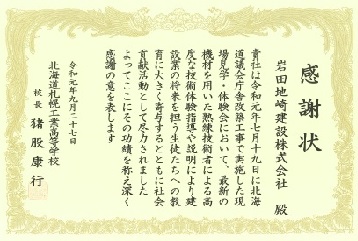 感謝状
岩田地崎建設株式会社 殿
貴社は令和元年七月十九日に北海
道議会庁舎改築工事で実施した現
場見学・体験会において、最新の
機材を用いた熟練技術者による高
度な技術体験指導や説明により建
設業の将来を担う生徒たちへの教
育に大きく寄与するとともに社会
貢献活動として尽力されました
よってここにその功績を称え深く
感謝の意を表します
令和元年九月二十七日
北海道札幌工業高等学校
校長 猪股康行